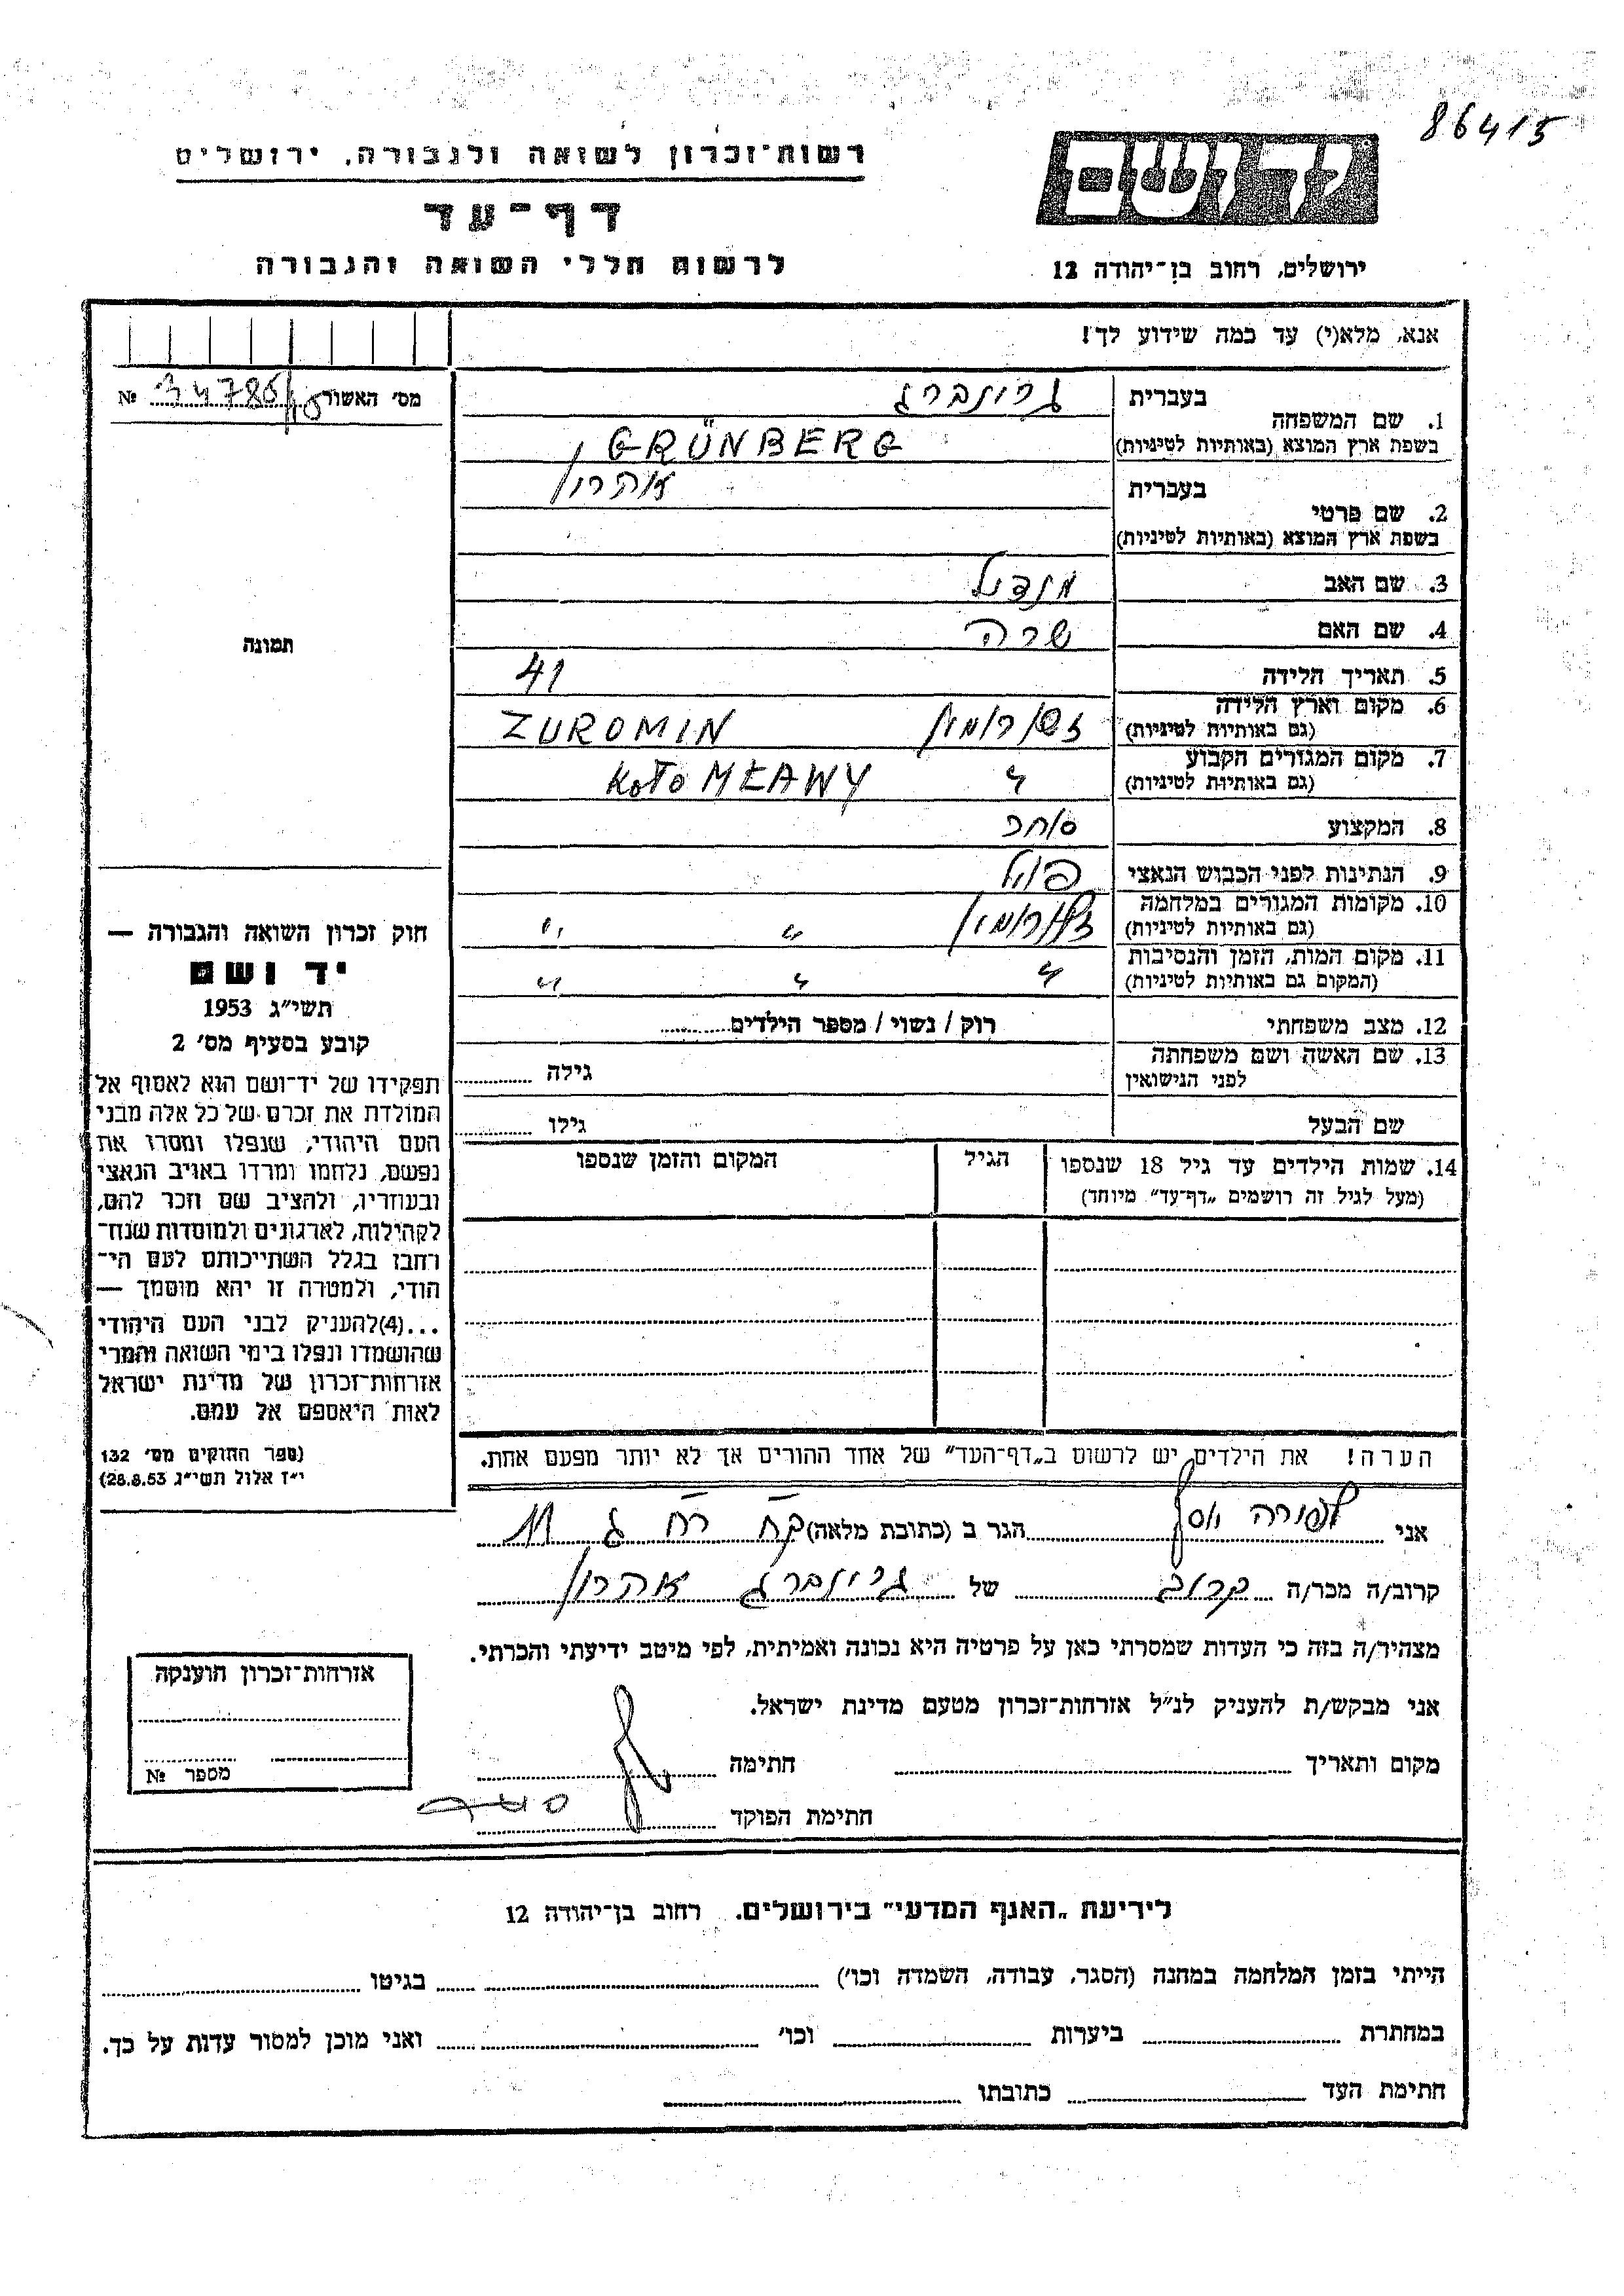 86415
יד ושם
ירושלים, רחוב בן־יהודה 12
רשות־זכרון לשואה ולגבורה, ירושלים
דף־עד
לרשום חללי השואה והגבורה
אנא, מלא(י) עד כמה שידוע לך!
מס' האשור № 34786
תמונה
1. שם המשפחה
בעברית גרונברג
בשפת ארץ המוצא (באותיות לטיניות) GRÜNBERG
2. שם פרטי
בעברית אהרון
בשפת ארץ המוצא (באותיות לטיניות)
3. שם האב מנדל
4. שם האם שרה
5. תאריך הלידה 41
6. מקום וארץ הלידה
(גם באותיות לטיניות) ZUROMIN
7. מקום המגורים הקבוע
(גם באותיות לטיניות) " KOŁO MŁAWY
8. המקצוע סוחר
9. הנתינות לפני הכבוש הנאצי פולי
10. מקומות המגורים במלחמה
(גם באותיות לטיניות) " "
11. מקום המות, הזמן והנסיבות
(המקום גם באותיות לטיניות) " " "
12. מצב משפחתי רוק / נשוי / מספר הילדים
13. שם האשה ושם משפחתה
לפני הנישואין גילה
שם הבעל גילו
14. שמות הילדים עד גיל 18 שנספו
(מעל לגיל זה רושמים „דף־עד״ מיוחד)
הגיל
המקום והזמן שנספו
הערה! את הילדים יש לרשום ב„דף־העד״ של אחד ההורים אך לא יותר מפעם אחת.
חוק זכרון השואה והגבורה —
יד ושם
תשי״ג 1953
קובע בסעיף מס' 2
תפקידו של יד־ושם הוא לאסוף אל
המולדת את זכרם של כל אלה מבני
העם היהודי, שנפלו ומסרו את
נפשם, נלחמו ומרדו באויב הנאצי
ובעוזריו, ולהציב שם וזכר להם,
לקהילות, לארגונים ולמוסדות שנח־
רחבו בגלל השתייכותם לעם הי־
הודי, ולמטרה זו יהא מוסמך —
...(4)להעניק לבני העם היהודי
שהושמדו ונפלו בימי השואה והמרי
אזרחות־זכרון של מדינת ישראל
לאות היאספם אל עמם.
(ספר החוקים מס' 132
י״ז אלול תשי״ג 28.8.53)
אני צפורה אסף הגר ב (כתובת מלאה)
קרוב/ה מכר/ה קרוב של גרונברג אהרון
מצהיר/ה בזה כי העדות שמסרתי כאן על פרטיה היא נכונה ואמיתית, לפי מיטב ידיעתי והכרתי.
אני מבקש/ת להעניק לנ״ל אזרחות־זכרון מטעם מדינת ישראל.
מקום ותאריך חתימה
חתימת הפוקד
אזרחות־זכרון הוענקה
מספר №
לידיעת „האגף המדעי״ בירושלים. רחוב בן־יהודה 12
הייתי בזמן המלחמה במחנה (הסגר, עבודה, השמדה וכו') בגיטו
במחתרת ביערות וכו' ואני מוכן למסור עדות על כך.
חתימת העד כתובתו